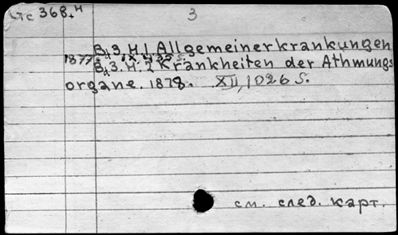 Gc 368,4
3
Bd 3. H. 1 Allgemeinerkrankungen
1877.
Bd 3. H. 2 Krankheiten der Athmungs
organe. 1878. XII, 1026 S.
см. след. карт.